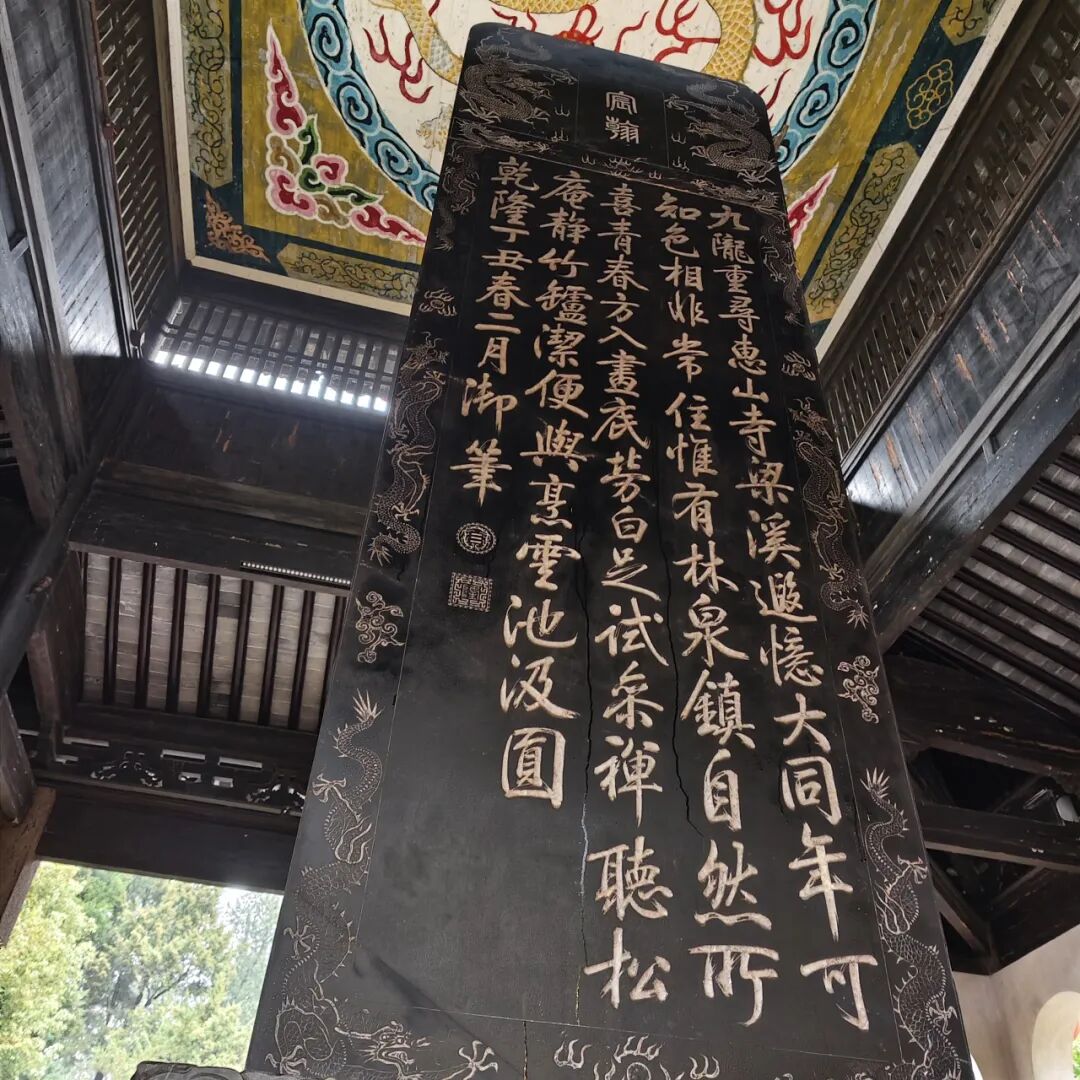 宸翰
九隴重尋惠山寺梁溪遐憶大同年可
知色相非常住惟有林泉鎮自然所
喜青春方入畫底勞白足試參禪聽松
庵静竹鑪潔便與烹雲池汲圓
乾隆丁丑春二月御筆